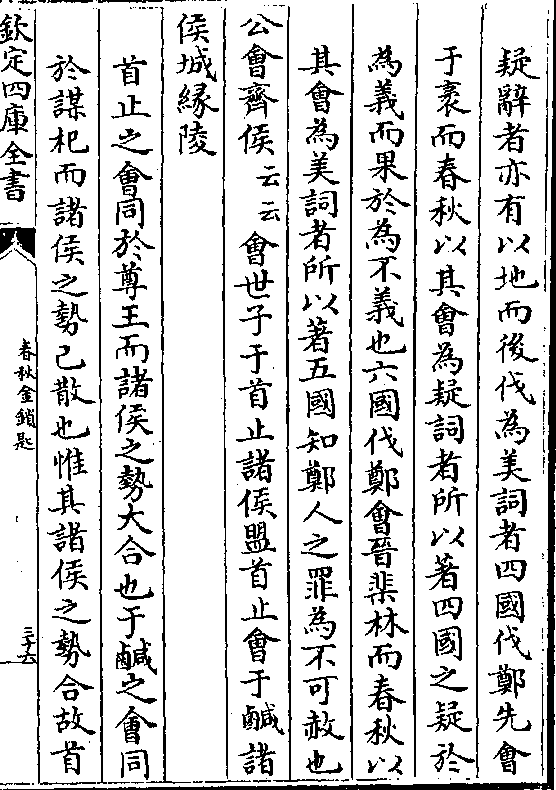 疑辭者亦有以地而後伐為美詞者四國伐鄭先會
于袲而春秋以其會為疑詞者所以著四國之疑於
為義而果於為不義也六國伐鄭會晉棐林而春秋以
其會為美詞者所以著五國知鄭人之罪為不可赦也
公會齊侯云云會世子于首止諸侯盟首止會于鹹諸
侯城緣陵
首止之會同於尊王而諸侯之勢大合也于鹹之會同
於謀杞而諸侯之勢已散也惟其諸侯之勢合故首
欽定四庫全書
春秋金鎖匙
三十六